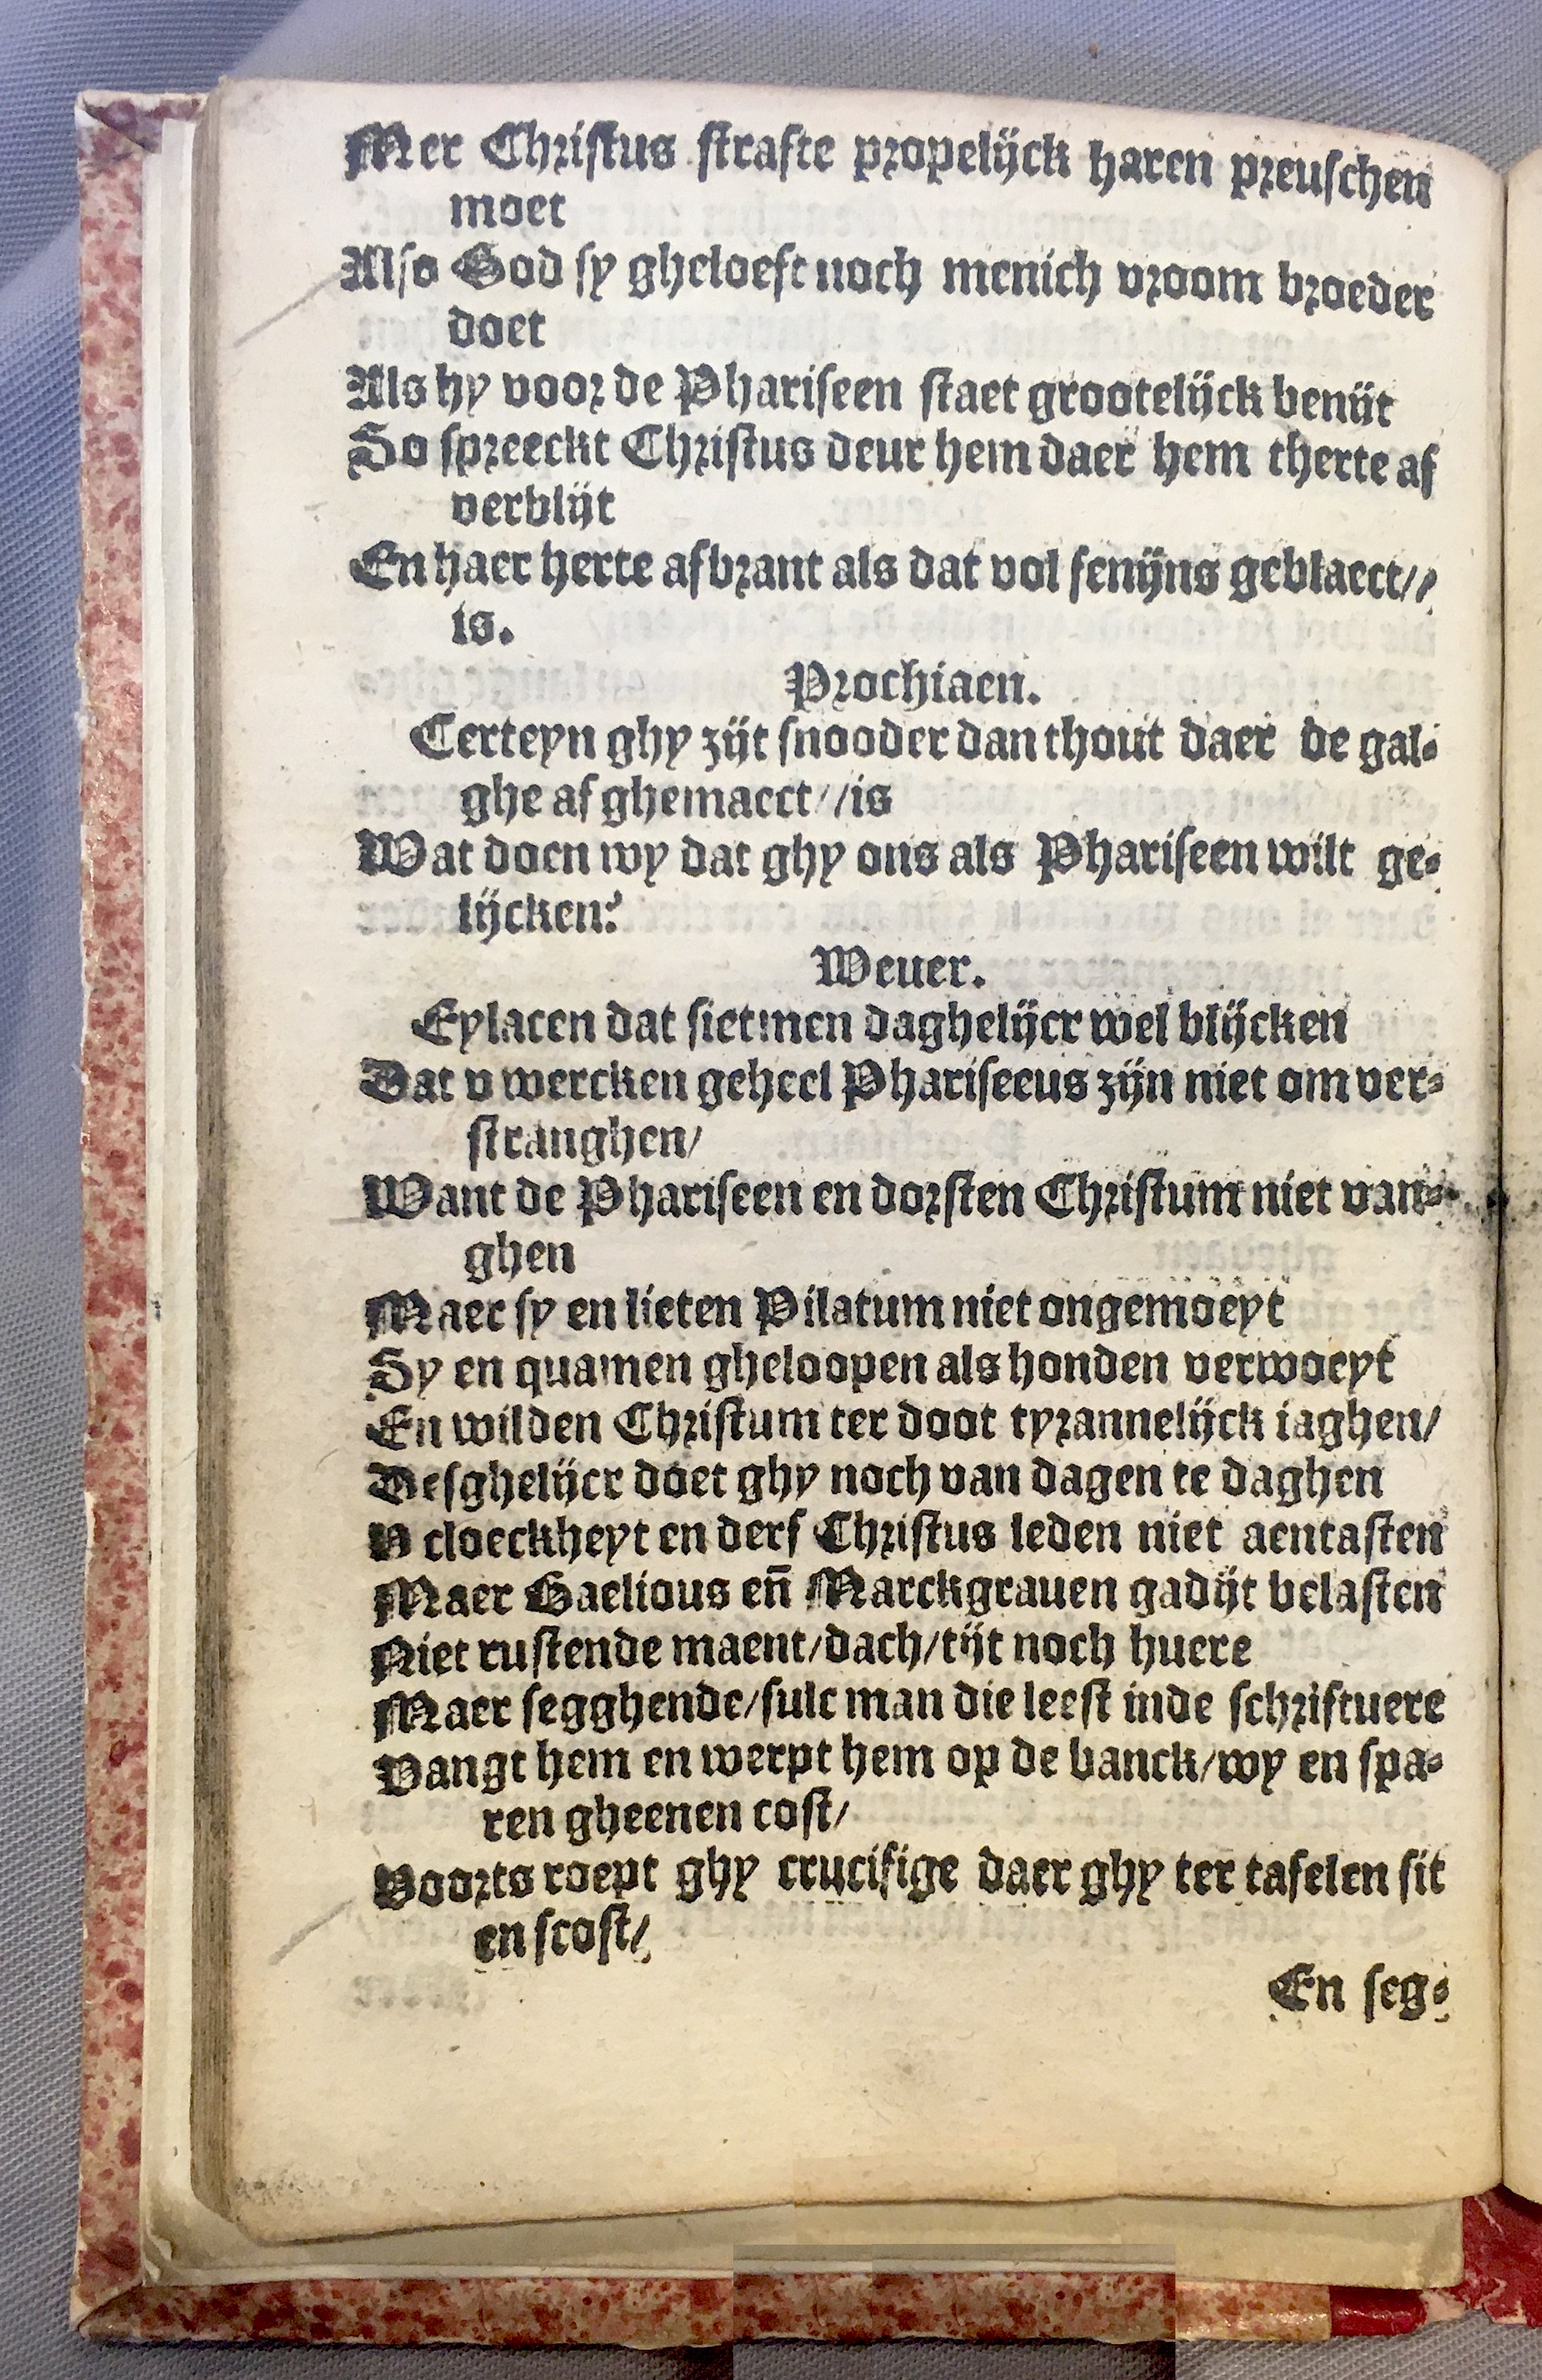 Mer Christus strafte propelijck haren preuschen
moet
Also God sy gheloeft noch menich vroom broeder
doet
Als hy voor de Phariseen staet grootelijck benijt
So spreeckt Christus deur hem daer hem therte af
verblijt
En haer herte afbrant als dat vol fenijns geblaect//
is.
Prochiaen.
Certeyn ghy zijt snooder dan thout daer de gal-
ghe af ghemaect//is
Wat doen wy dat ghy ons als Phariseen wilt ge-
lijcken?
Weuer.
Eylacen dat sietmen daghelijcx wel blijcken
Dat v wercken geheel Phariseeus zijn niet om ver-
stranghen/
Want de Phariseen en dorsten Christum niet van-
ghen
Maer sy en lieten Pilatum niet ongemoeyt
Sy en quamen gheloopen als honden verwoeyt
En wilden Christum ter doot tyrannelijck iaghen/
Desghelijcx doet ghy noch van dagen te daghen
V cloeckheyt en derf Christus leden niet aentasten
Maer Baelious eñ Marckgrauen gadijt belasten
Niet rustende maent/dach/tijt noch huere
Maer segghende/sulc man die leest inde schriftuere
Vangt hem en werpt hem op de banck/wy en spa-
ren gheenen cost/
Voorts roept ghy crucifige daer ghy ter tafelen sit
en scost/
En seg-